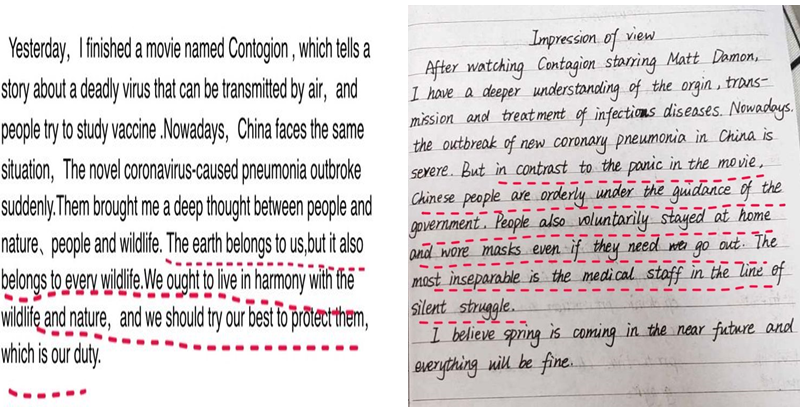 Yesterday, I finished a movie named Contogion , which tells a
story about a deadly virus that can be transmitted by air, and
people try to study vaccine .Nowadays, China faces the same
situation, The novel coronavirus-caused pneumonia outbroke
suddenly.Them brought me a deep thought between people and
nature、people and wildlife. The earth belongs to us,but it also
belongs to every wildlife.We ought to live in harmony with the
wildlife and nature, and we should try our best to protect them,
which is our duty.
Impression of view
After watching Contagion starring Matt Damon,
I have a deeper understanding of the orgin, trans-
mission and treatment of infectious diseases. Nowadays.
the outbreak of new coronary pneumonia in China is
severe. But in contrast to the panic in the movie,
Chinese people are orderly under the guidance of the
government. People also voluntarily stayed at home
and wore masks even if they need go out. The
most inseparable is the medical staff in the line of
silent struggle.
I believe spring is coming in the near future and
everything will be fine.